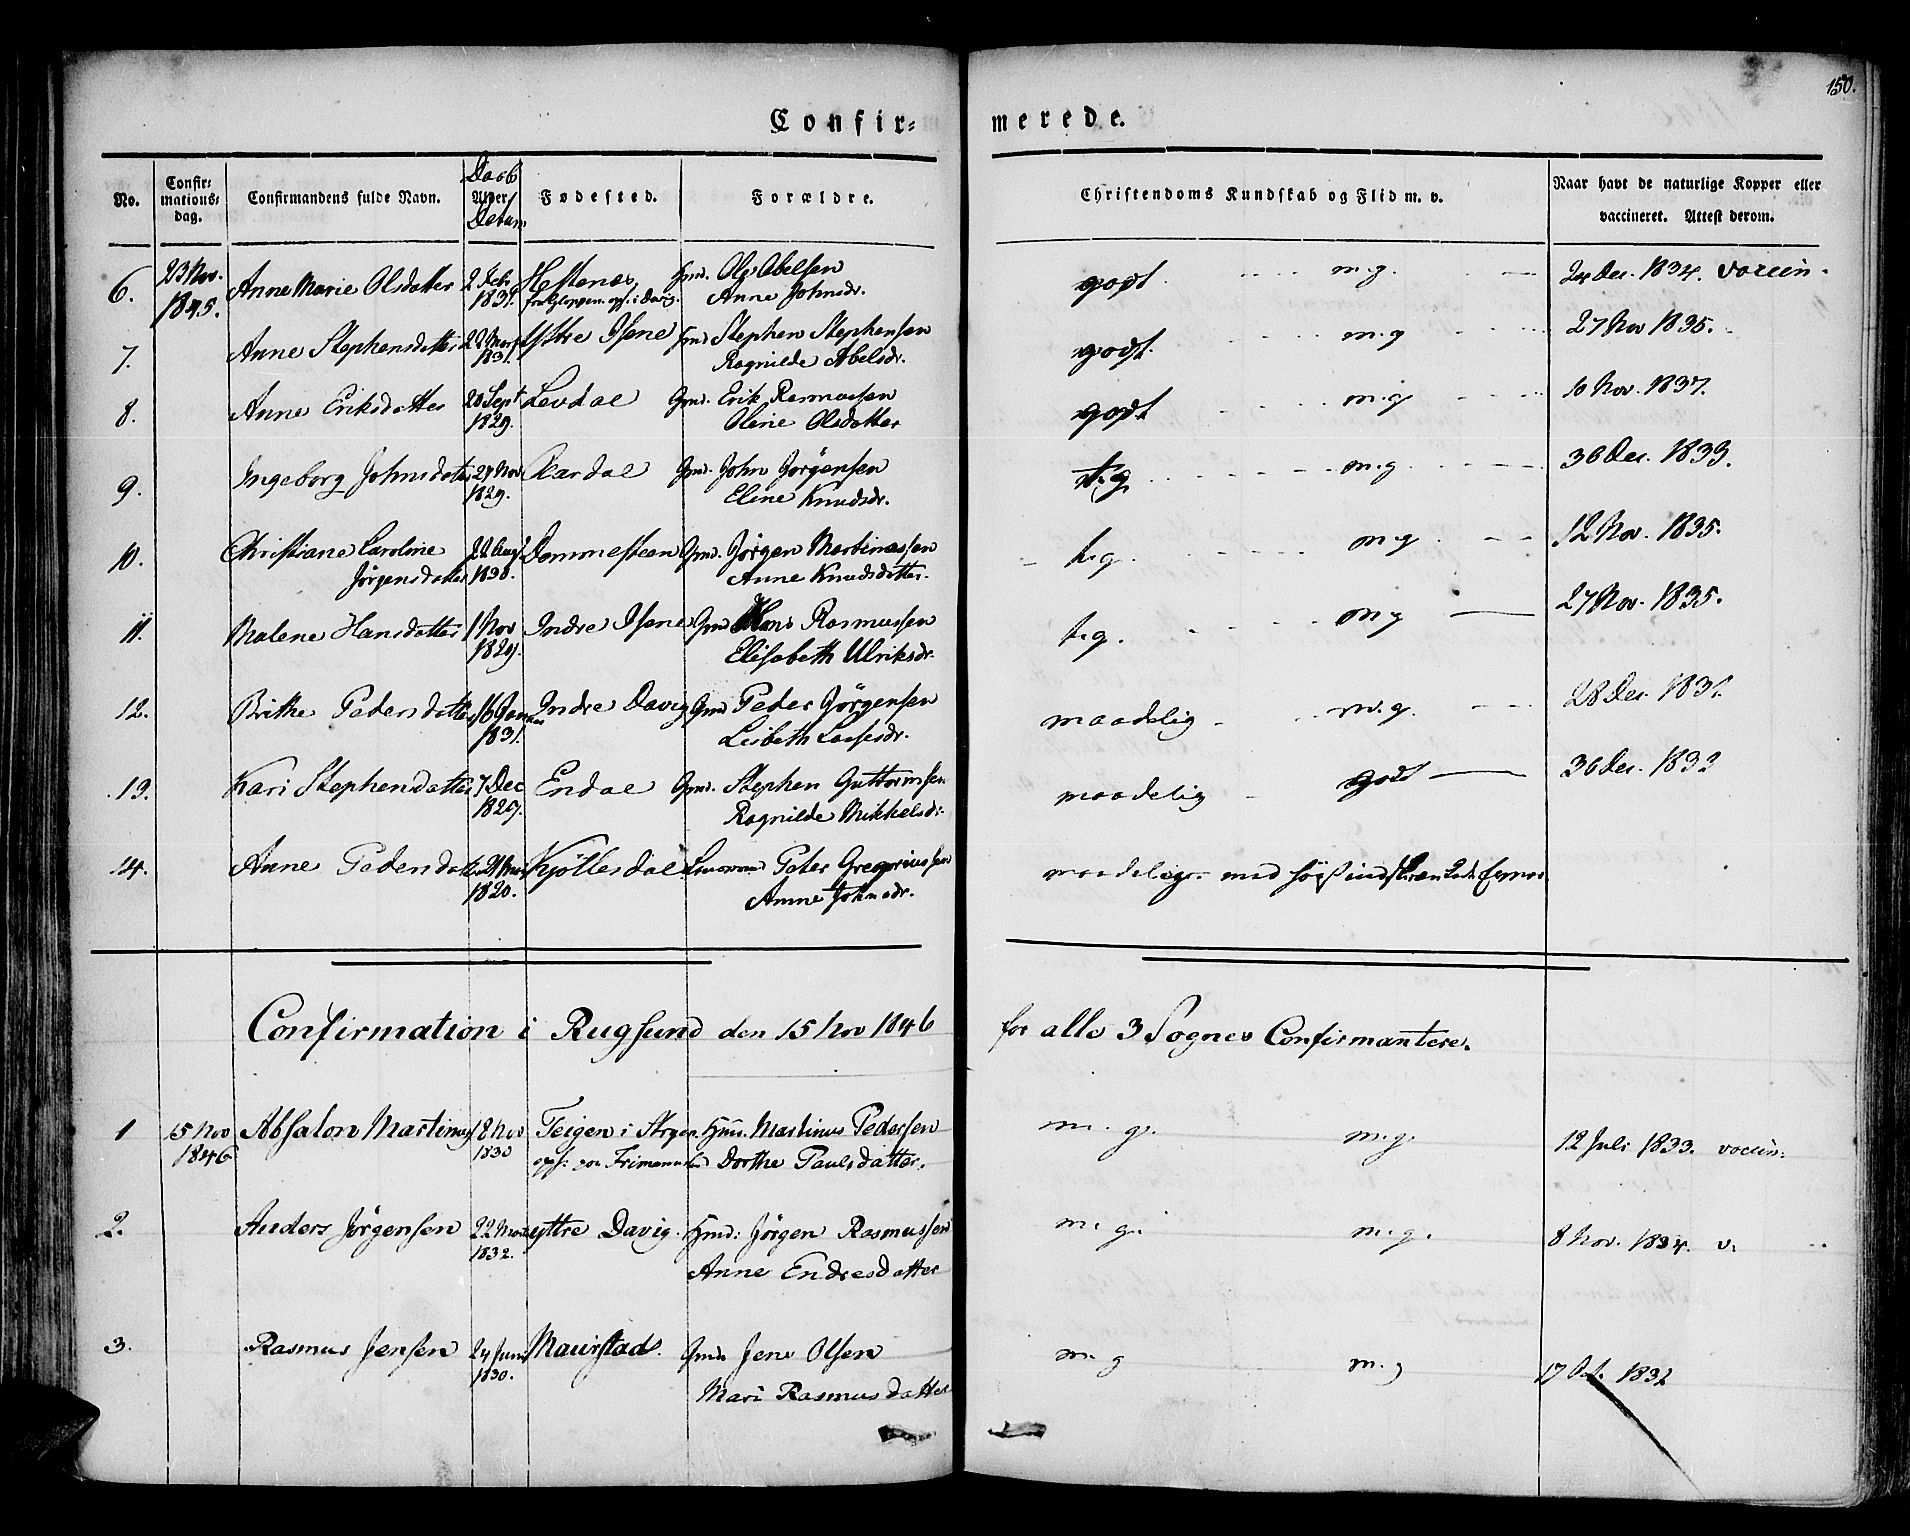 150.
Confir-merede.
No. Confir-mations-dag. Confirmandens fulde Navn. Daab Alder Datum Fødested. Forældre. Christendoms Kundskab og Flid m. v. Naar havt de naturlige Kopper eller vaccineret. Attest derom.
6. 23 Nov. 1845. Anne Marie Olsdatter 2 Feb 1831. Hestenæs Hmd. Ole Abelsen godt m.g. 24 Dec. 1834. vaccin.
Anne Johnsdr.
7. Anne Stephensdatter 1831. Ystre Isene Hmd Stephen Stephensen godt. m.g 27 Nov 1835.
Ragnilde Abelsdr.
8. Anne Eriksdatter 20 Sept 1829. Levdal Gmd. Erik Rasmussen godt m.g 10 Nov. 1837.
Oline Olsdatter
9. Ingeborg Johnsdatter 27 Nov 1829. Aardal Gmd. John Jørgensen t.g m.g 30 Dec. 1833.
Elene Knudsdr.
10. Christiane Caroline 22 Aug 1830. Dommesteen Gmd. Jørgen Martinussen t.g. m.g 12 Nov. 1835.
Jørgensdatter Anne Knudsdatter.
11. Malene Hansdatter 1 Nov 1829. Indre Isene Gmd Hans Rasmussen t.g. m.g 27 Nov. 1835.
Elisabeth Ulriksdr.
12. Brithe Pedersdatter 16 Januar 1831. Indre Davig Gmd Peder Jørgensen maadelig m.g. 28 Dec. 1831.
Lisbeth Lassesdr.
13. Kari Stephensdatter 7 Dec 1829. Endal Gmd. Stephen Guttormsen maadelig godt 30 Dec. 1833
Ragnilde Mikkelsdr.
14. Anne Pedersdatter 1820. Kjøllesdal Peter Gregoriussen maadelig med
Anne Johnsdr.
Confirmation i Rugsund den 15 Nov 1846 for alle 3 Sognes Confirmantere.
1 15 Nov 1846 Absalon Martinus 18 Nov 1830 Teigen i Hmd. Martinus Pedersen m. g. m.g. 12 Juli 1833. vaccin:
Dorthe Paulsdatter.
2. Anders Jørgensen 22 1832. ystre Davig. Hmd: Jørgen Rasmussen m. g. m.g. 8 Nov. 1834. v.
Anne Endresdatter
3. Rasmus Jensen 24 Juni 1830. Maurstad. Gmd. Jens Olsen m. g m.g 17 Oct. 1832
Mari Rasmusdatter